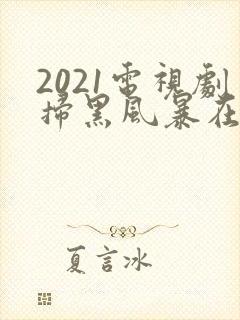 2021電視劇
掃黑風暴在
夏言冰